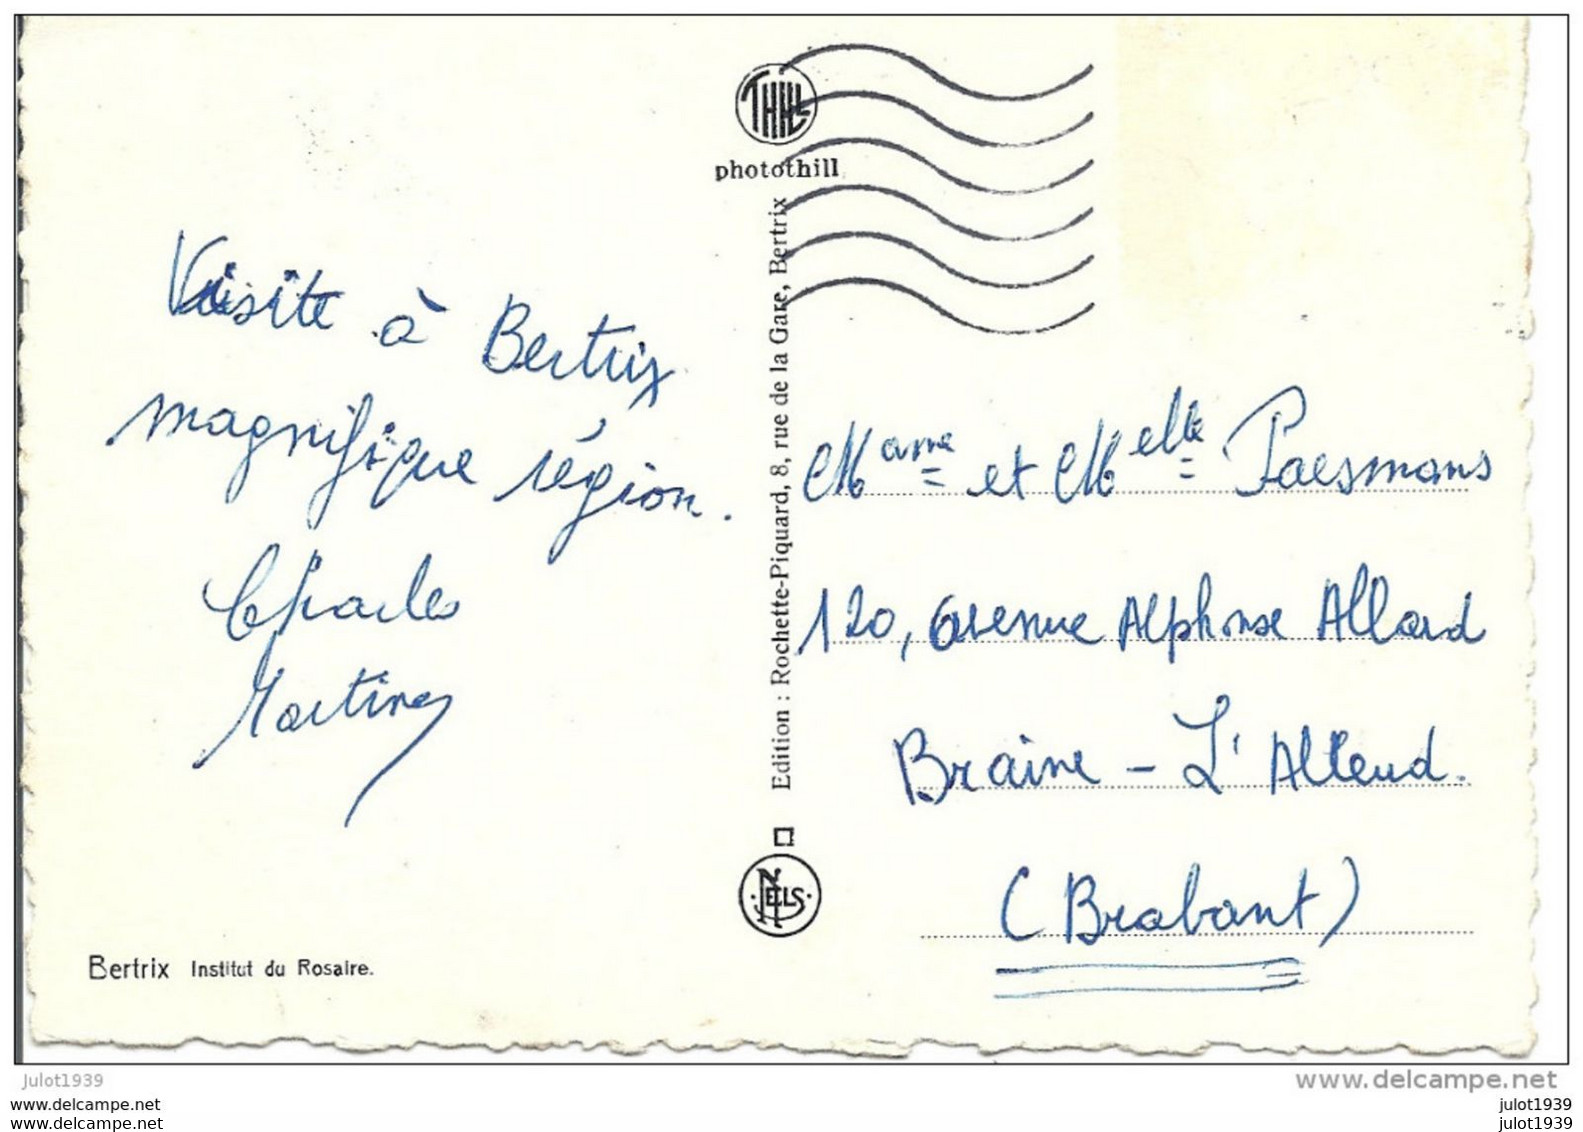 THILL
photothill
Visite à Bertrix
magnifique région.
Charles
Edition : Rochette-Piquard, 8, rue de la Gare, Bertrix
Mame et Melle Paesmans
120, avenue Alphonse Allard
Braine - L'Alleud.
(Brabant)
NELS
Bertrix Institut du Rosaire.
julot1939
www.delcampe.com
www.delcampe.com
www.delcampe.net
julot1939
julot1939